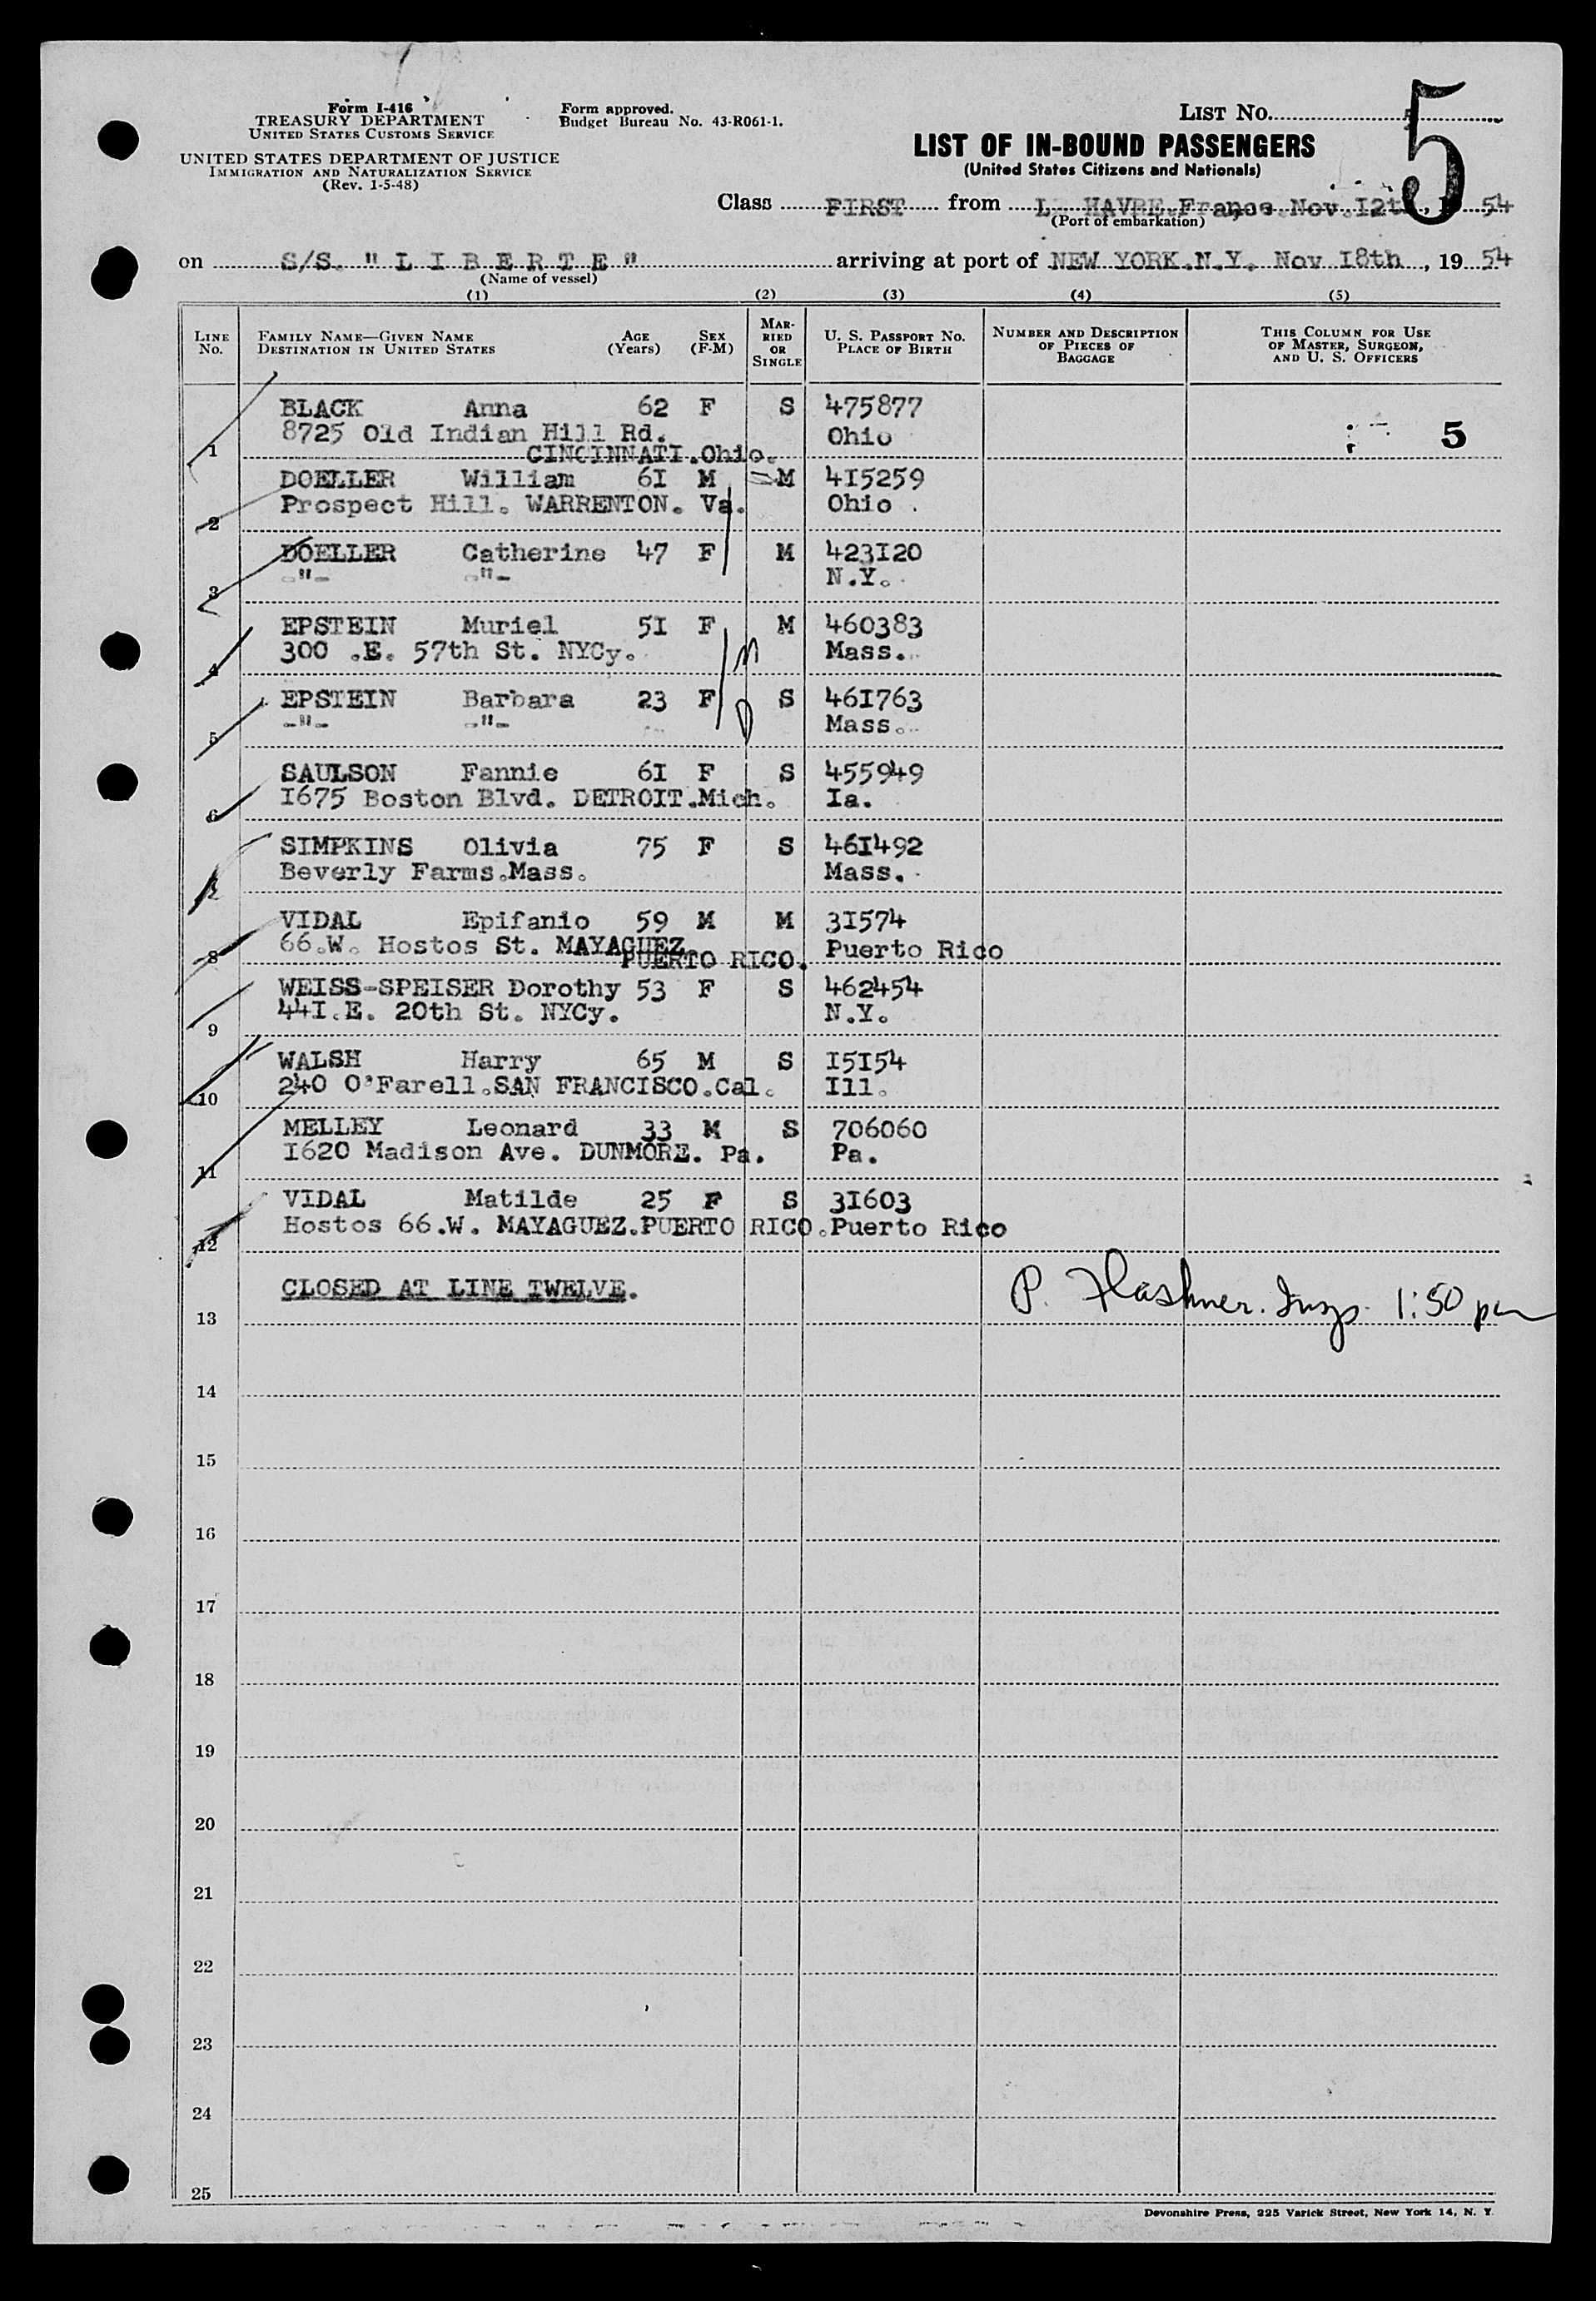 Form I-416
TREASURY DEPARTMENT
UNITED STATES CUSTOMS SERVICE
UNITED STATES DEPARTMENT OF JUSTICE
IMMIGRATION AND NATURALIZATION SERVICE
(Rev. 1-5-48)
Form approved.
Budget Bureau No. 43-R061-1.
LIST NO. 5
LIST OF IN-BOUND PASSENGERS
(United States Citizens and Nationals)
Class FIRST from HAVRE.France.Nov.12th, 54
(Port of embarkation)
on S/S. "LIBERTE" arriving at port of NEW YORK.N.Y. Nov 18th, 19 54
(Name of vessel)
(1) (2) (3) (4) (5)
LINE NO. FAMILY NAME—GIVEN NAME DESTINATION IN UNITED STATES AGE (Years) SEX (F-M) MARRIED OR SINGLE U. S. PASSPORT NO. PLACE OF BIRTH NUMBER AND DESCRIPTION OF PIECES OF BAGGAGE THIS COLUMN FOR USE OF MASTER, SURGEON, AND U. S. OFFICERS
BLACK Anna 62 F S 475877
1 8725 Old Indian Hill Rd. Ohio 5
CINCINNATI.Ohio.
DOELLER William 61 M M 415259
2 Prospect Hill. WARRENTON. Va. Ohio .
DOELLER Catherine 47 F M 423120
3 -"- -"- N.Y.
EPSTEIN Muriel 51 F M 460383
4 300 .E. 57th St. NYCy. Mass.
EPSTEIN Barbara 23 F S 461763
5 -"- -"- Mass.
SAULSON Fannie 61 F S 455949
6 1675 Boston Blvd. DETROIT.Mich. Ia.
SIMPKINS Olivia 75 F S 461492
7 Beverly Farms.Mass. Mass.
VIDAL Epifanio 59 M M 31574
8 66.W. Hostos St. MAYAGUEZ Puerto Rico
PUERTO RICO.
WEISS-SPEISER Dorothy 53 F S 462454
9 441.E. 20th St. NYCy. N.Y.
WALSH Harry 65 M S 15154
10 240 O'Farell.SAN FRANCISCO.Cal. Ill.
MELLEY Leonard 33 M S 706060
11 1620 Madison Ave. DUNMORE. Pa. Pa.
VIDAL Matilde 25 F S 31603
12 Hostos 66.W. MAYAGUEZ.PUERTO RICO.Puerto Rico
CLOSED AT LINE TWELVE.
13 P. Flashner. Insp. 1:50 pm
14
15
16
17
18
19
20
21
22
23
24
25
Devonshire Press, 225 Varick Street, New York 14, N. Y.